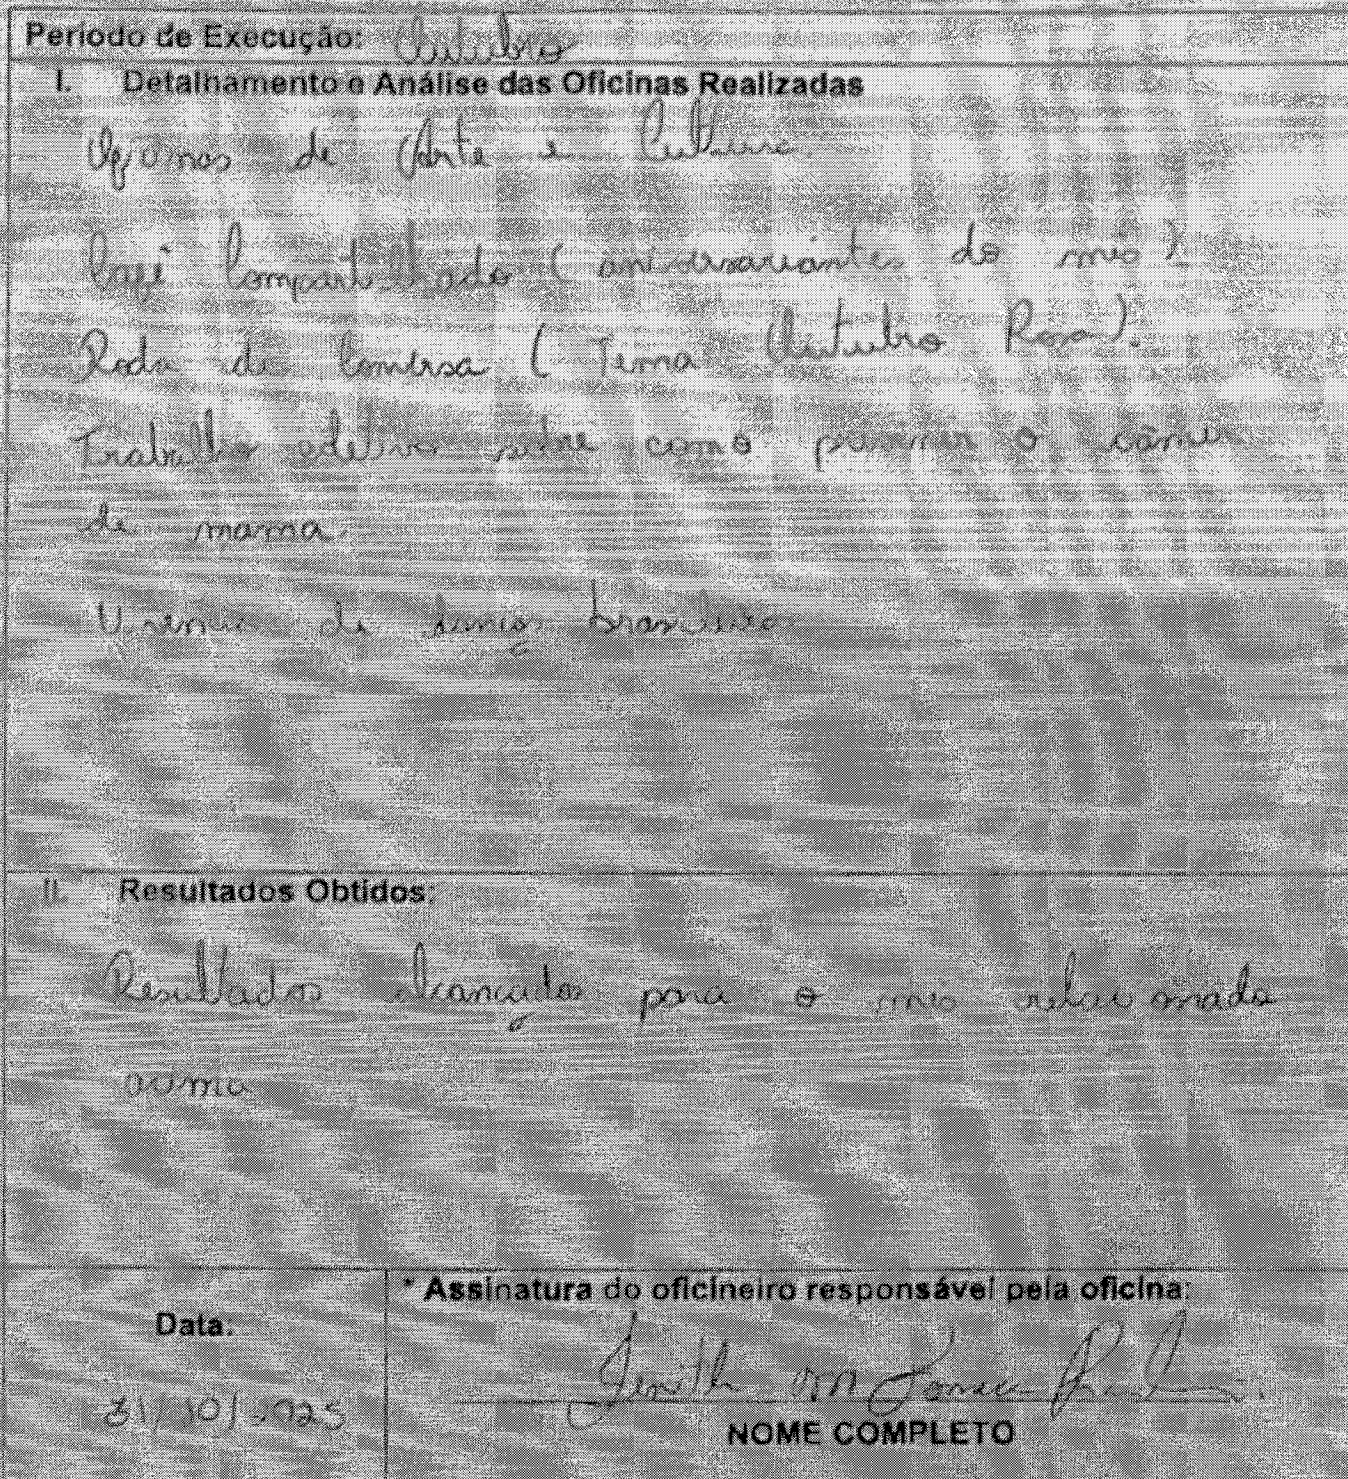 Período de Execução: Outubro
I. Detalhamento e Análise das Oficinas Realizadas
Oficinas de Arte e Cultura
Café Compartilhado (aniversariantes do mês).
Roda de Conversa (Tema Outubro Rosa).
Trabalho sobre como prevenir o câncer
de mama.
Vivencia de danças brasileiras
II. Resultados Obtidos:
Resultados alcançados para o mês relacionado
acima
* Assinatura do oficineiro responsável pela oficina:
Data:
31/10/2023
NOME COMPLETO